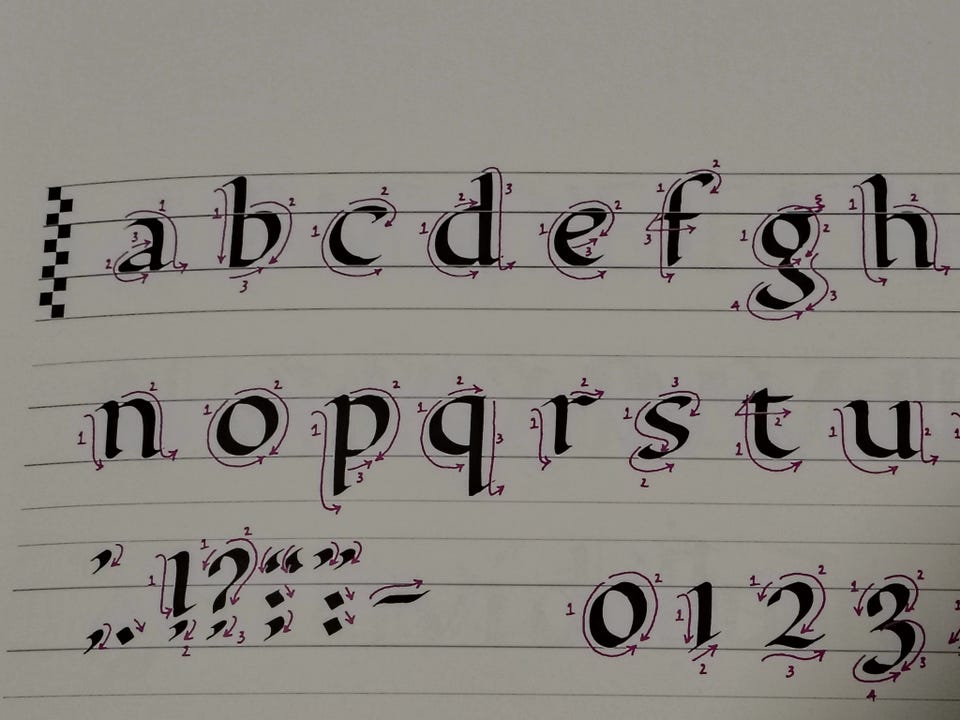 a b c d e f g h
n o p q r s t u
' ! ? “ ” , . ; : - 0 1 2 3